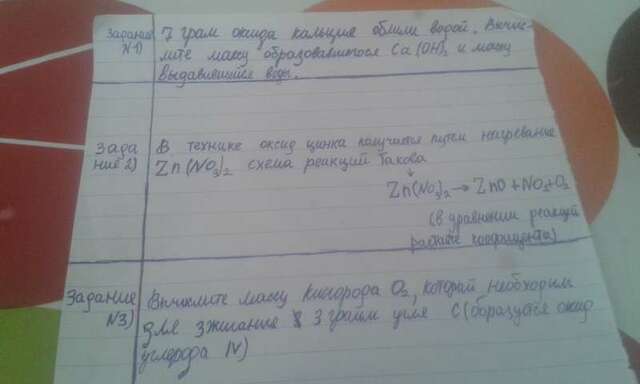 Задание
N1)
7 грам оксида кальция облили водой. Вычис-
лите массу образовавшегося Ca(OH)₂ и массу
воды.
Зада
ние 2)
В технике оксид цинка получается путем нагревание
Zn(NO₃)₂ схема реакций такова
↓
Zn(NO₃)₂ → ZnO + NO₂ + O₂
(в уравнении реакций
коефициента)
Задание
N3)
Вычислите массу кислорода O₂, который необходим
для зжигание 3 грамм угля C (образуется оксид
углерода IV)